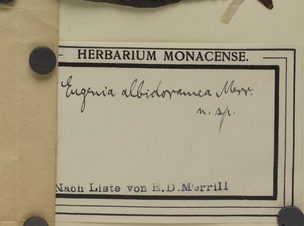 HERBARIUM MONACENSE.
Eugenia albidoramea Merr.
n. sp.
Nach Liste von E.D.Merrill